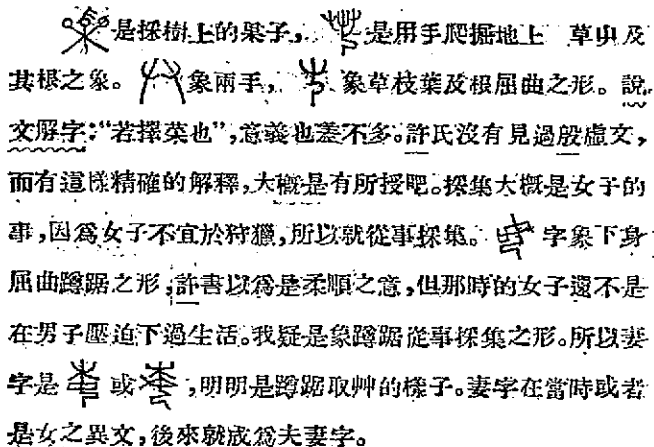 是採樹上的果子, 是用手爬掘地上 草由及
其根之象。 象兩手, 象草枝葉及根屈曲之形。說
文解字:“若擇菜也”,意義也差不多。許氏沒有見過殷虛文,
而有這樣精確的解釋,大概是有所授吧。採集大概是女子的
事,因爲女子不宜於狩獵,所以就從事採集。 字象下身
屈曲蹲踞之形,許書以爲是柔順之意,但那時的女子還不是
在男子壓迫下過生活。我疑是象蹲踞從事採集之形。所以妻
字是 或 ,明明是蹲踞取艸的樣子。妻字在當時或者
是女之異文,後來就成爲夫妻字。